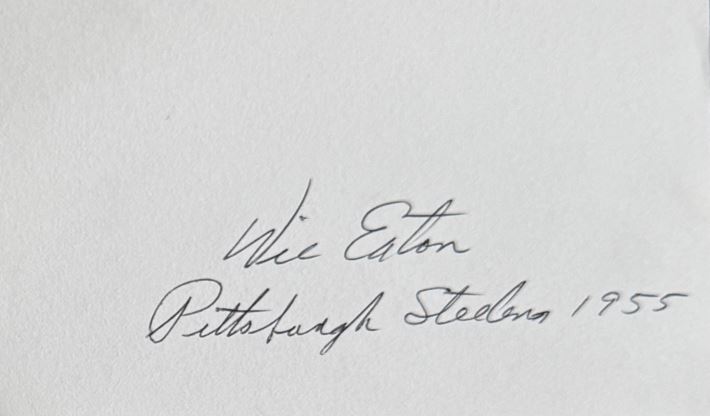 Vic Eaton
Pittsburgh Steelers 1955